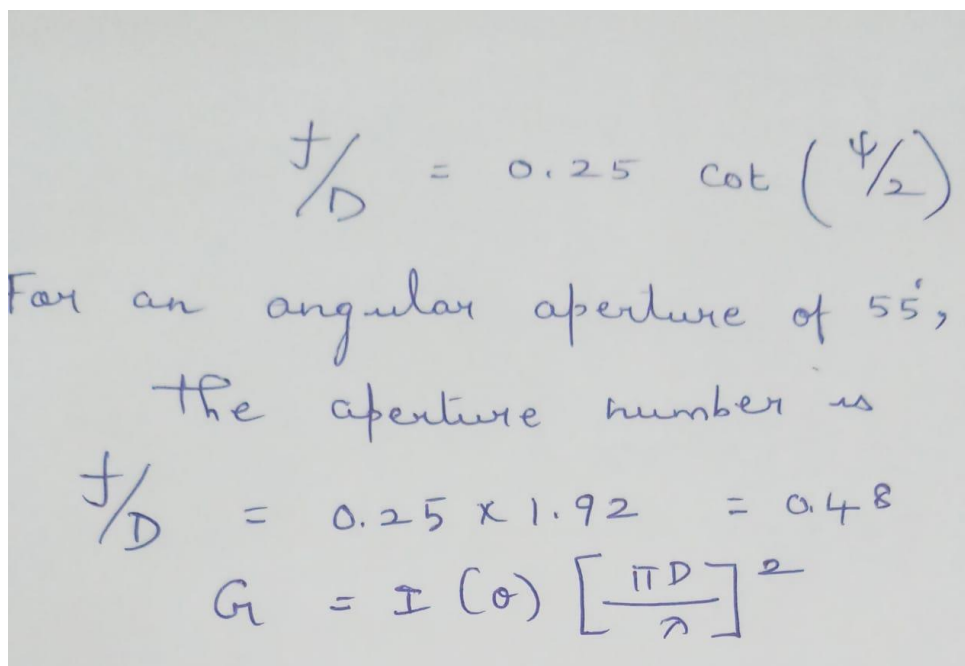 f/D = 0.25 cot (ψ/2)
For an angular aperture of 55°,
the aperture number is
f/D = 0.25 x 1.92 = 0.48
G = I (θ) [πD/λ]²